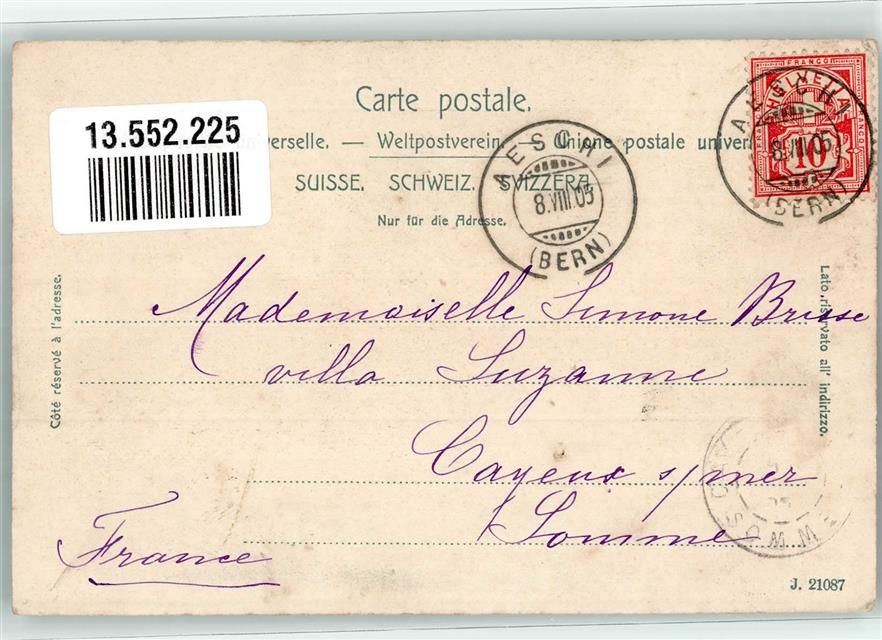 Carte postale.
13.552.225
universelle. — Weltpostverein. — Unione postale univer
SUISSE. SCHWEIZ. SVIZZERA.
Nur für die Adresse.
FRANCO
HELVETIA
10
AESCHI
8.VIII.05
(BERN)
AESCHI
8.VIII.05
(BERN)
Côté réservé à l'adresse.
Lato riservato all' indirizzo.
Mademoiselle Simone Brisse
villa Suzanne
Cayeux s/mer
Somme
France
SOMME
J. 21087